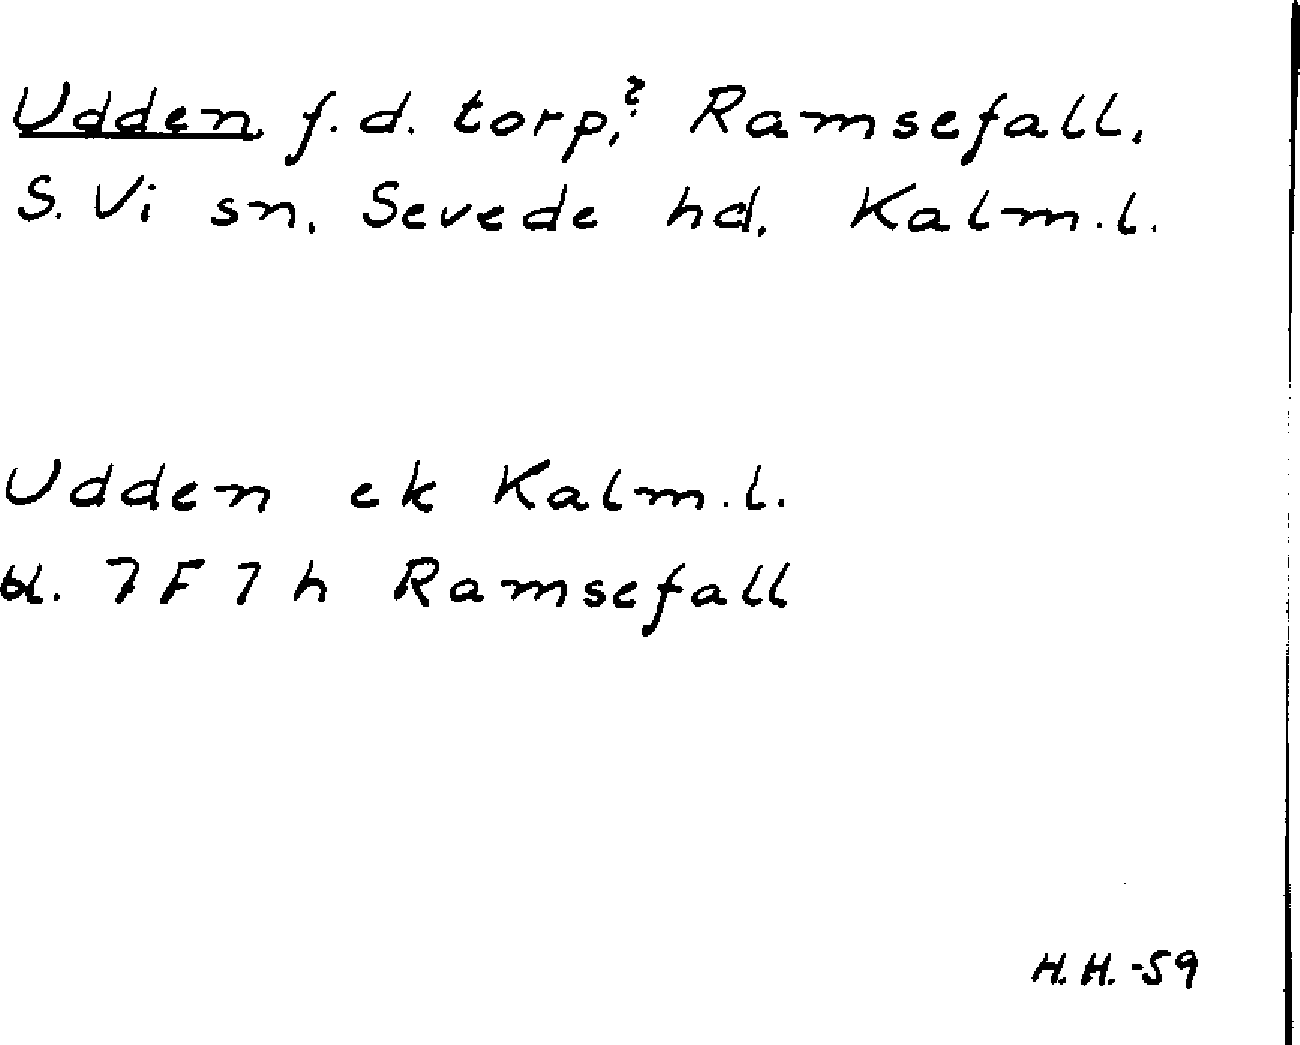 Udden f.d. torp,? Ramsefall,
S. Vi sn. Sevede hd. Kalm.l.
Udden ek Kalm.l.
bl. 7 F 7 h Ramsefall
H.H.-59